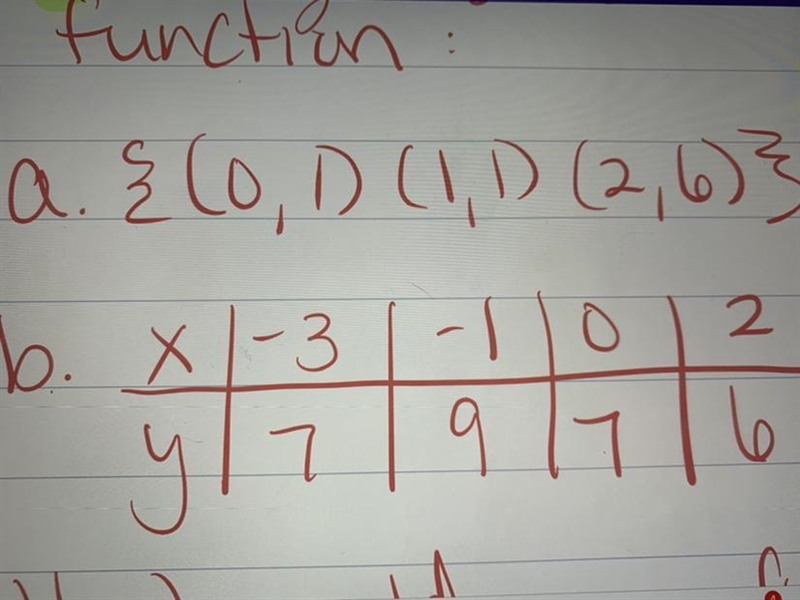 function :
a. {(0,1) (1,1) (2,6)}
b. x | -3 | -1 | 0 | 2
y | 7 | 9 | 7 | 6